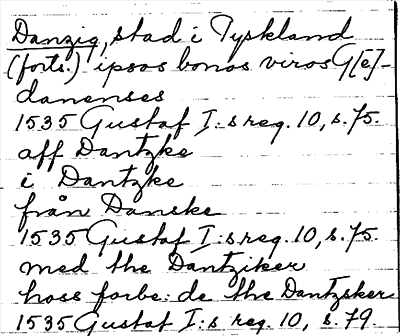 Danzig, stad i Tyskland
(forts.) ipsos bonos viros G[e]-
danenses
1535 Gustaf I:s reg. 10, s. 75.
aff Dantzke
i Dantzke
från Danske
1535 Gustaf I:s reg. 10, s. 75.
med the Dantziker
hoss forbe: de the Dantzsker
1535 Gustaf I:s reg. 10, s. 79.